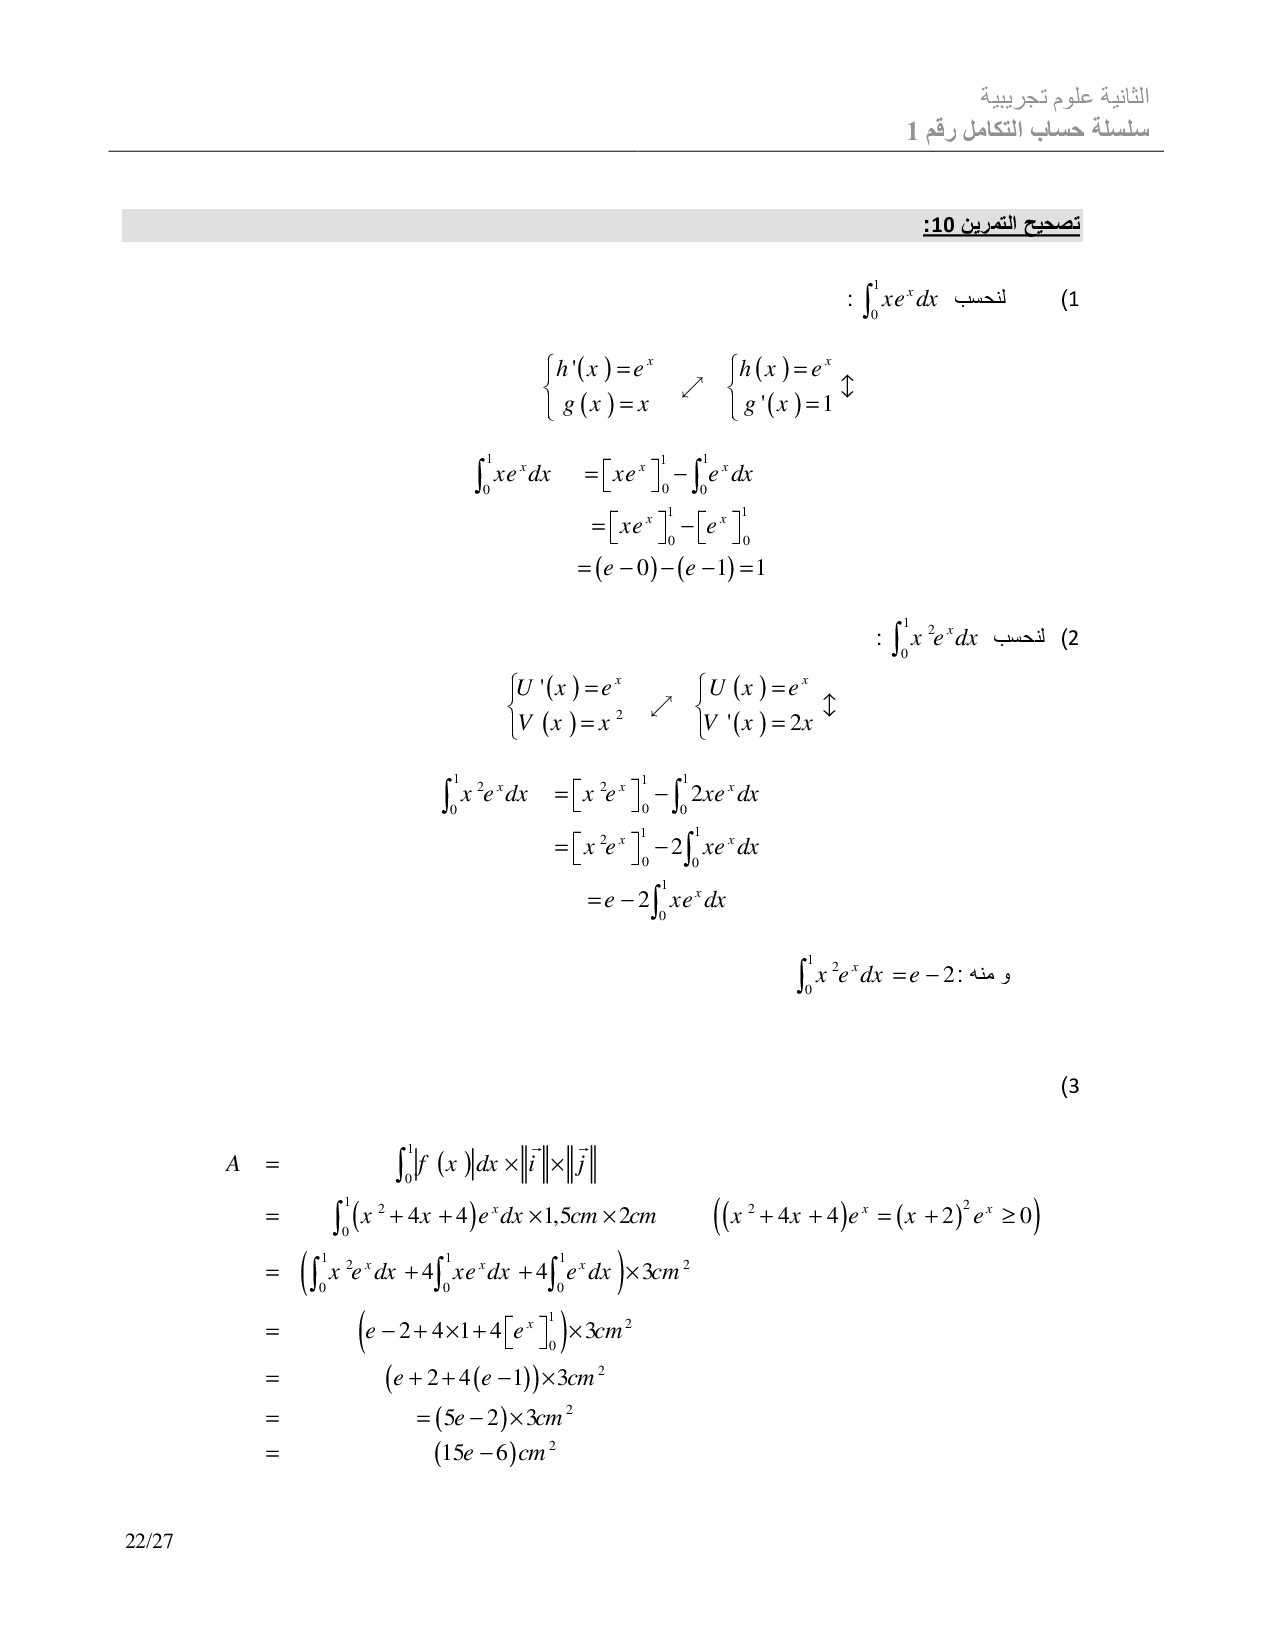 الثانية علوم تجريبية
سلسلة حساب التكامل رقم 1
تصحيح التمرين 10:
1) لنحسب ∫₀¹ xeˣdx :
{h'(x)=eˣ ; g(x)=x ⤢ {h(x)=eˣ ; g'(x)=1 ↕
∫₀¹ xeˣdx = [xeˣ]₀¹ − ∫₀¹ eˣdx
= [xeˣ]₀¹ − [eˣ]₀¹
= (e − 0) − (e − 1) = 1
2) لنحسب ∫₀¹ x²eˣdx :
{U'(x)=eˣ ; V(x)=x² ⤢ {U(x)=eˣ ; V'(x)=2x ↕
∫₀¹ x²eˣdx = [x²eˣ]₀¹ − ∫₀¹ 2xeˣdx
= [x²eˣ]₀¹ − 2∫₀¹ xeˣdx
= e − 2∫₀¹ xeˣdx
و منه : ∫₀¹ x²eˣdx = e − 2
3)
A = ∫₀¹ |f(x)|dx × ‖i⃗‖ × ‖j⃗‖
= ∫₀¹ (x² + 4x + 4)eˣdx × 1,5cm × 2cm ((x² + 4x + 4)eˣ = (x + 2)²eˣ ≥ 0)
= (∫₀¹ x²eˣdx + 4∫₀¹ xeˣdx + 4∫₀¹ eˣdx) × 3cm²
= (e − 2 + 4×1 + 4[eˣ]₀¹) × 3cm²
= (e + 2 + 4(e − 1)) × 3cm²
= = (5e − 2) × 3cm²
= (15e − 6)cm²
22/27